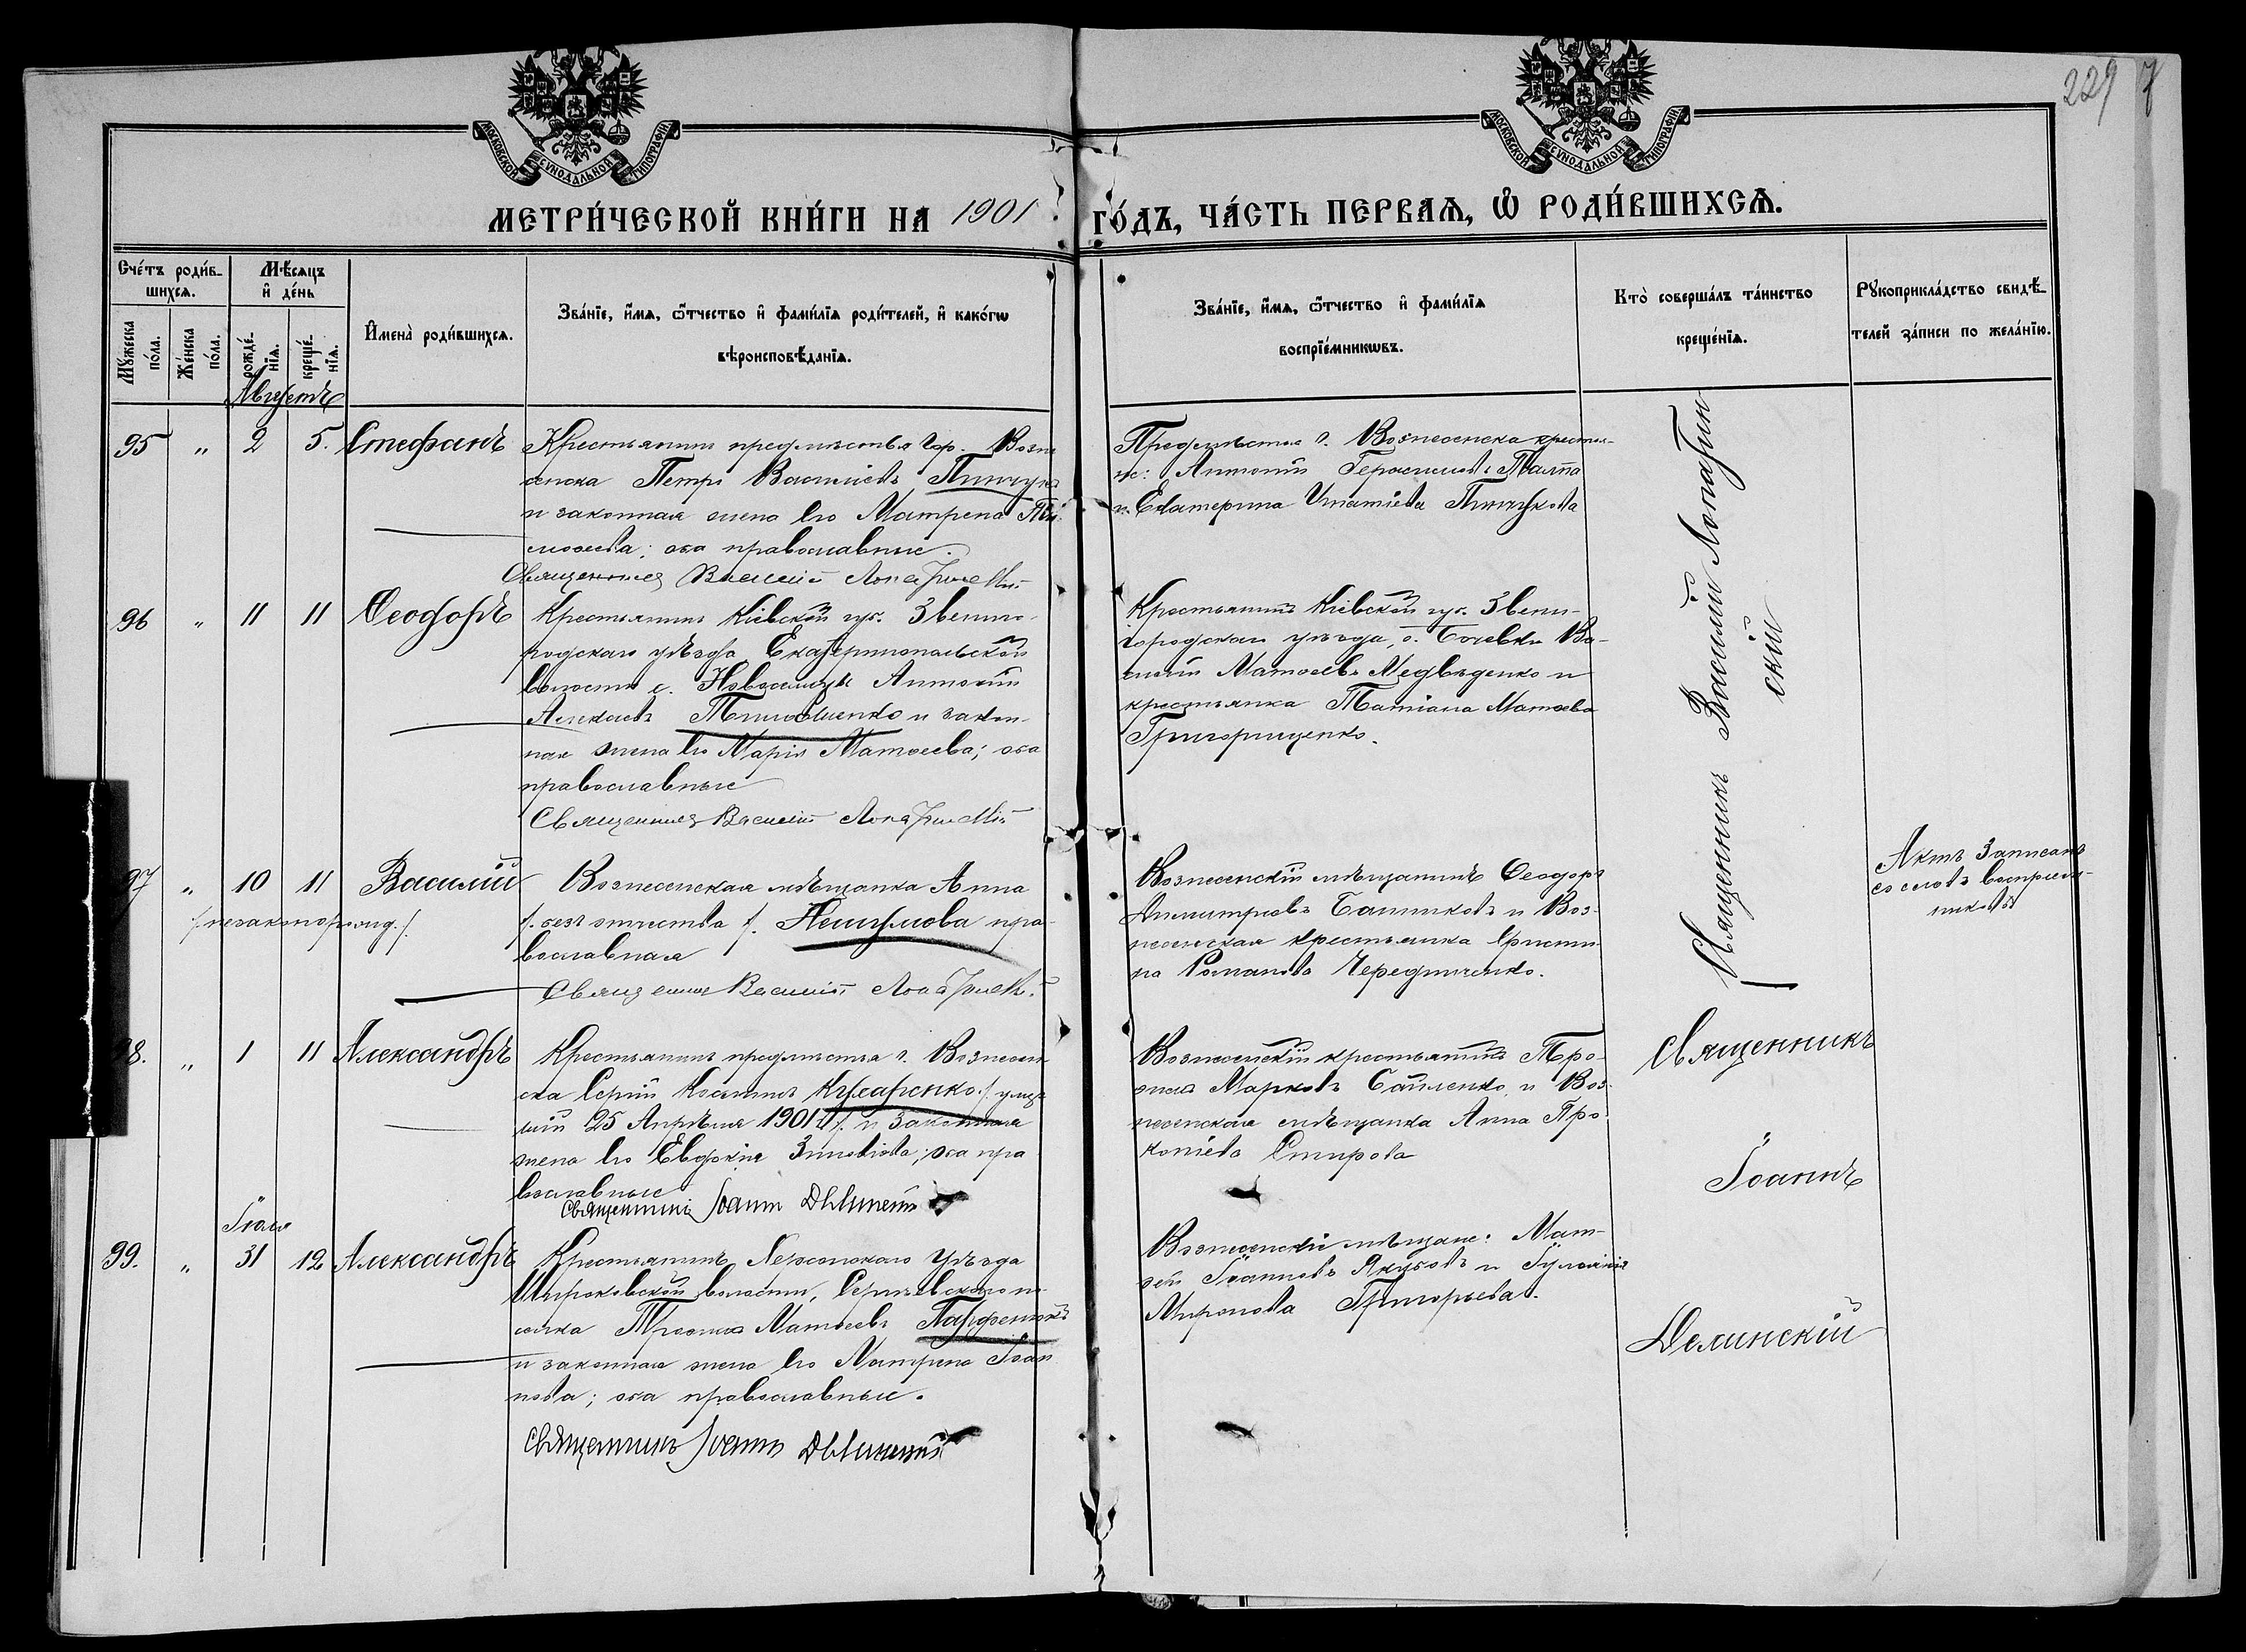 229
МОСКОВСКОЙ СѴНОДАЛЬНОЙ ТИПОГРАФІИ
МОСКОВСКОЙ СѴНОДАЛЬНОЙ ТИПОГРАФІИ
МЕТРИ́ЧЕСКОЙ КНИ́ГИ НА 1901 ГО́ДЪ, ЧА́СТЬ ПЕРВАѦ, Ѡ РОДИ́ВШИХСѦ.
Сче́тъ роди́в-
шихсѧ.
Мꙋжеска
по́ла.
Же́нска
по́ла.
Мѣ́сѧцъ
и҆ де́нь
рожде́-
нїѧ.
креще́-
нїѧ.
И҆мена̀ роди́вшихсѧ.
Зва́нїе, и҆́мѧ, ѻ҆́тчество и҆ фами́лїѧ роди́телей, и҆ како́гѡ
вѣроисповѣ́данїѧ.
Зва́нїе, и҆́мѧ, ѻ҆́тчество и҆ фами́лїѧ
воспрїе́мникѡвъ.
Кто̀ соверша́лъ та́инство
креще́нїѧ.
Рꙋкоприкла́дство свидѣ́-
телей за́писи по жела́нїю.
Августъ
95 " 2 5. Стефанъ
Крестьянинъ предмѣстья гор. Возне
сенска Петръ Васильевъ Пинчукъ
и законная жена его Матрена
православные.
Священникъ Василій Лопатинскій
Предмѣстья г. Вознесенска крестья-
не: Антоній Герасимовъ
и Екатерина Игнатіева Пинчукова
96 " 11 11 Ѳеодоръ
Крестьянинъ Кіевской губ. Звени-
родскаго уѣзда Екатеринопольской
волости с. Новоселицы Антоній
Алексѣевъ и закон-
ная жена его Марія Матѳеева; оба
православные
Священникъ Василій Лопатинскій
Крестьянинъ Кіевской губ. Звени-
городскаго уѣзда, с. Ва-
силій Матѳеевъ Медвѣденко и
крестьянка Татіана Матѳеева
Григорищенко.
97 " 10 11 Василій
/незаконорожд./.
Вознесенская мѣщанка Анна
/. безъ отчества /. пра-
вославная
Священникъ Василій Лопатинскій
Вознесенскій мѣщанинъ Ѳеодоръ
Димитріевъ Башмаковъ и Воз-
несенская крестьянка Христи-
на Романова Чередниченко.
Актъ записанъ
со словъ воспріем-
никовъ
Священникъ Василій Лопатин
скій
98. " 1 11 Александръ
Крестьянинъ предмѣстья г. Вознесен-
ска Сергій Косьминъ Кухаренко /. умер-
шій 25 Апрѣля 1901 г /. и законная
жена его Евдокія Зиновіева; оба пра
вославные
Священникъ Іоаннъ Делинскій
Вознесенскій крестьянинъ Тро-
фимъ Марковъ и Воз-
несенская мѣщанка Анна Про
копіева Спирова
Священникъ
Іоаннъ
Делинскій
Іюля
99. " 31 12 Александръ
Крестьянинъ Херсонскаго уѣзда
Широковской волости, Сергѣевскаго по-
селка Трофимъ Матѳеевъ Парфененко
и законная жена его Матрена Іоан
нова; оба православные.
Священникъ Іоаннъ Делинскій
Вознесенскіе мѣщане: Мат-
ѳей Іоанновъ Якубовъ и Іуліанія
Миронова Григорьева.